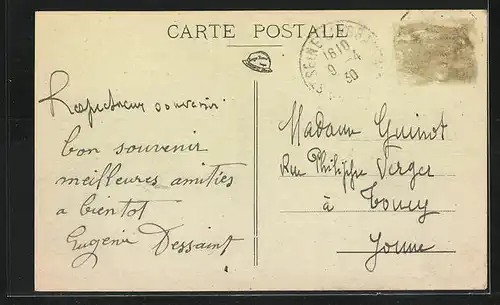 CARTE POSTALE
1810
9 - 4
30
Respectueux souvenir
bon souvenir
meilleures amitiés
a bientot
Eugenie Dessaint
Madame Guinot
Rue Philippe Verger
à Toucy
Yonne